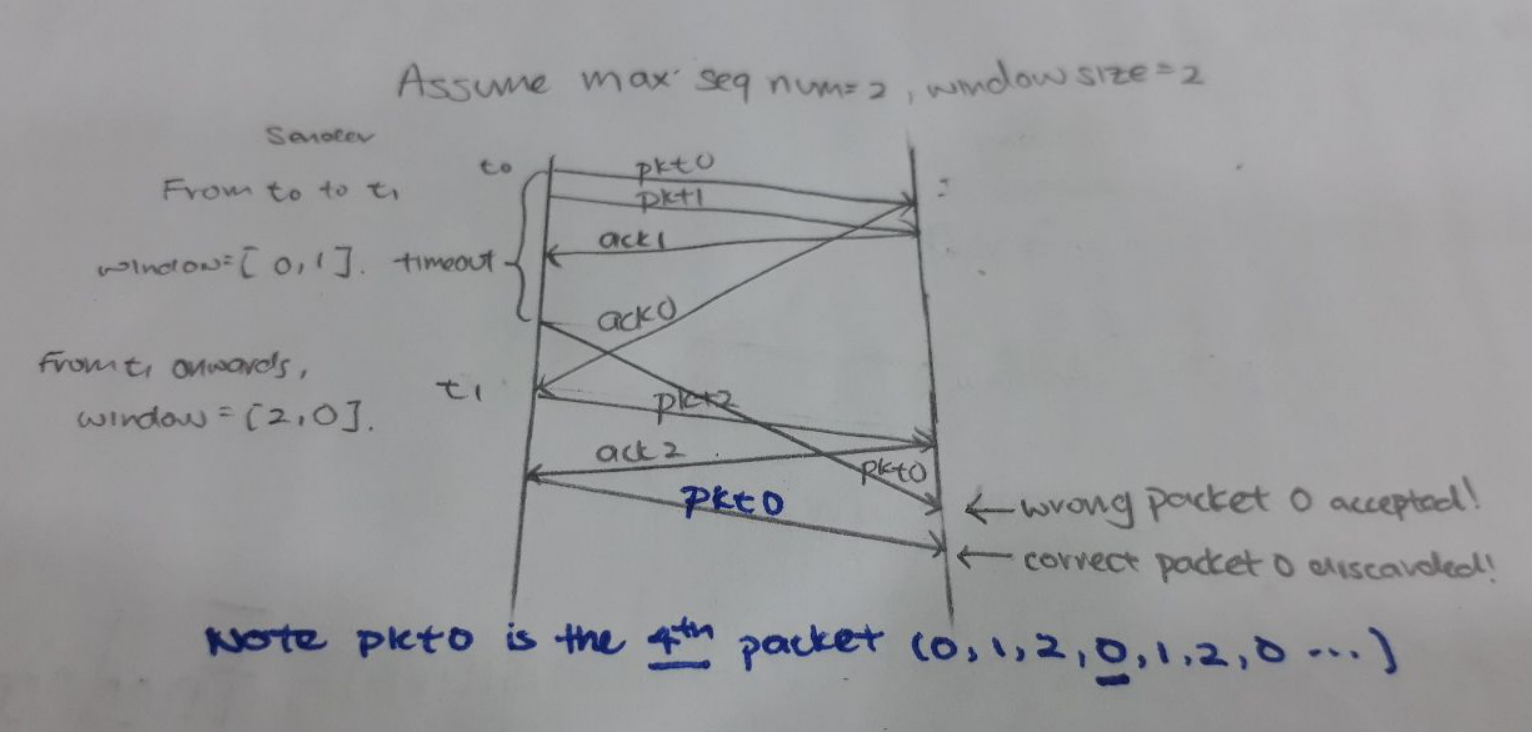 Assume max seq num=2, window size=2
Sender
t0
pkt0
From t0 to t1
pkt1
ack1
window=[0,1]. timeout
ack0
From t1 onwards,
t1
window=[2,0].
pkt2
ack2
pkt0
pkt0
← wrong packet 0 accepted!
← correct packet 0 discarded!
Note pkt0 is the 4th packet (0,1,2,0,1,2,0 ...)